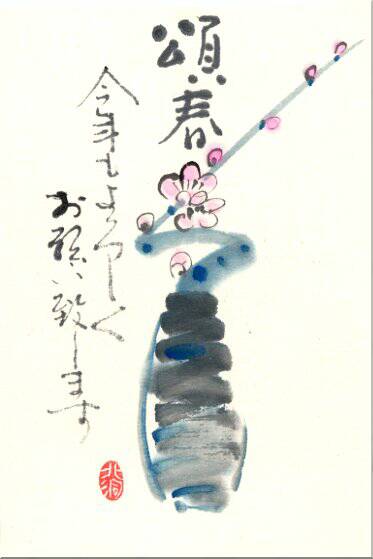 頌春
今年もよろしく
お願い致します